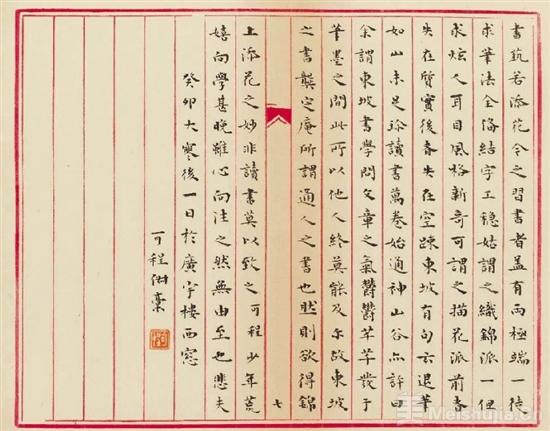 書藝若添花今之習書者蓋有兩極端一徒
求筆法全備結字工穩姑謂之織錦派一但
求炫人耳目風格新奇可謂之描花派前者
失在質實後者失在空疎東坡有句云退筆
如山未足珍讀書萬卷始通神山谷亦許曰
余謂東坡書學問文章之氣鬱鬱芊芊發于
筆墨之間此所以他人終莫能及尔故東坡
之書龔定庵所謂通人之書也然則欲得錦
七
上添花之妙非讀書莫以致之可程少年荒
嬉向學甚晚雖心向往之然無由至也悲夫
癸卯大寒後一日於廣宇樓西窓
可程稾
Meishujia.cn